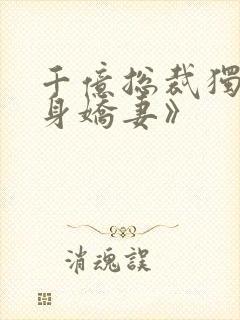 千億總裁獨
身嬌妻》
消魂誤